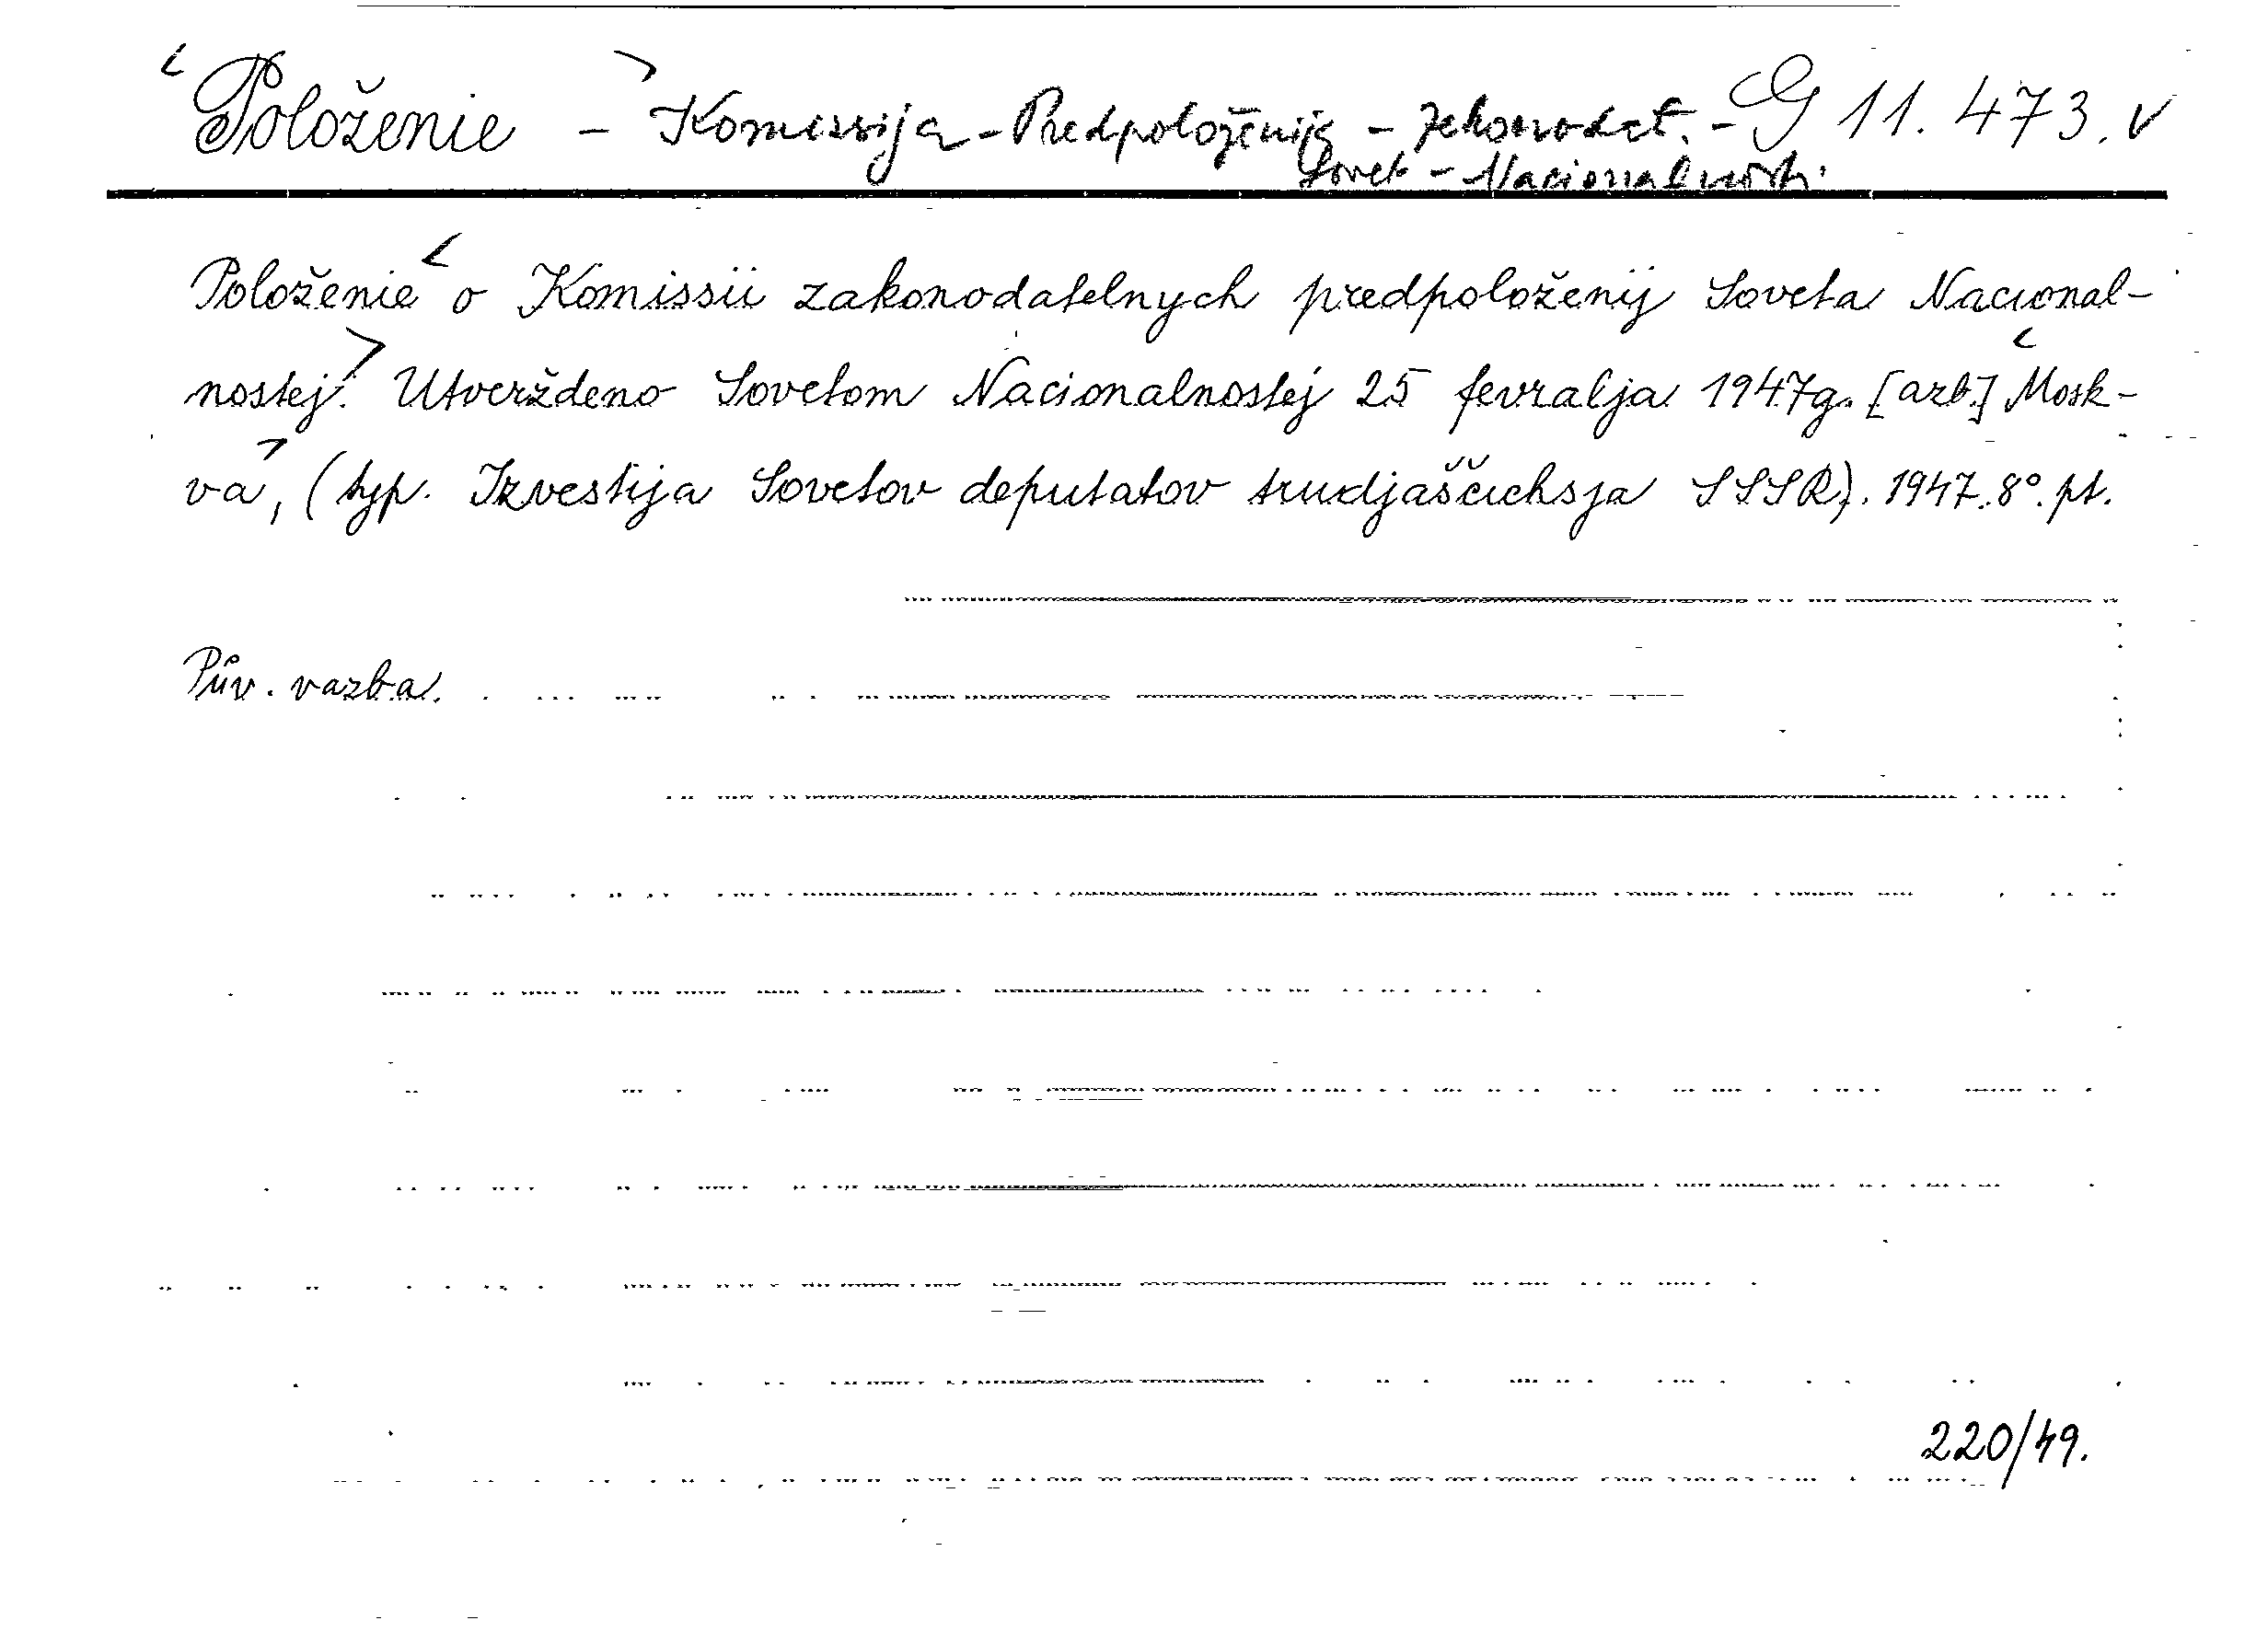 <Položenie -> Komissija - Predpoloženija - zakonodat. - G 11.473. v
Sovet - Nacionalnosti.
Položenie < o Komissii zakonodatelnych předpoloženij Soveta Nacional-
nostej.> Utverždeno Sovetom Nacionalnostej 25 fevralja 1947g. [azb.] <Mosk-
va>, (typ. Izvestija Sovetov deputatov trudjaščichsja SSSR). 1947. 8°. pt.
Pův. vazba.
220/49.